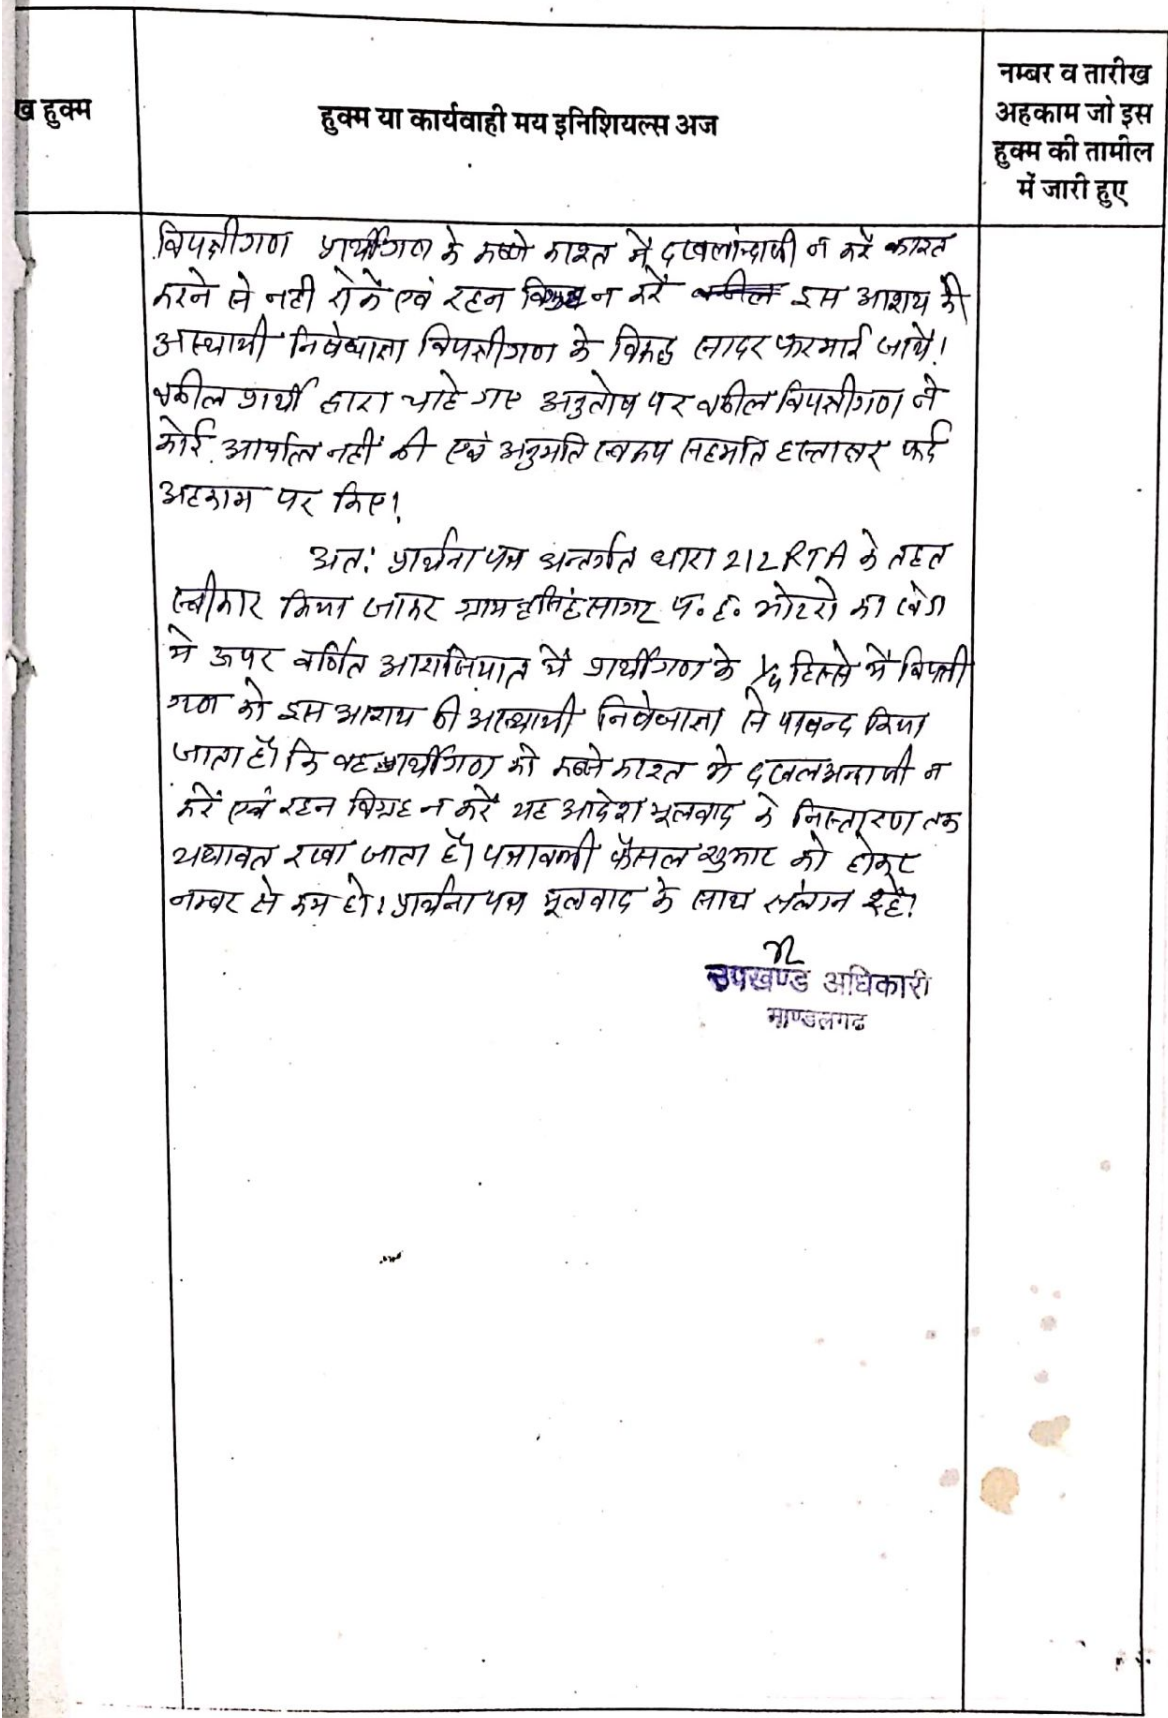 ख हुक्म
हुक्म या कार्यवाही मय इनिशियल्स अज
नम्बर व तारीख
अहकाम जो इस
हुक्म की तामील
में जारी हुए
विपक्षीगण प्रार्थीगण के कब्जे काश्त में दखलांन्दाजी न करें काश्त
करने से नही रोके एवं रहन न करें इस आशय की
अस्थायी निषेधाज्ञा विपक्षीगण के विरुद्ध सादर फरमाई जावें।
वकील प्रार्थी द्वारा चाहे गए अनुतोष पर वकील विपक्षीगण ने
कोई आपत्ति नहीं की एवं अनुमति स्वरूप सहमति हस्ताक्षर फर्द
अहकाम पर किए।
अतः प्रार्थना पत्र अन्तर्गत धारा 212 RTA के तहत
स्वीकार किया जाकर ग्राम प. ह. का खेडा
मे ऊपर वर्णित आराजियात में प्रार्थीगण के हिस्से में विपक्षी
गण को इस आशय की अस्थायी निषेधाज्ञा से पाबन्द किया
जाता है कि वह प्रार्थीगण को कब्जे काश्त मे दखलअन्दाजी न
करें एवं रहन विग्रह न करें यह आदेश मूलवाद के निस्तारण तक
यथावत रखा जाता है। पत्रावली फैसल शुमार को होकर
नम्बर से कम हो। प्रार्थना पत्र मूलवाद के साथ संलग्न रहे।
उपखण्ड अधिकारी
माण्डलगढ